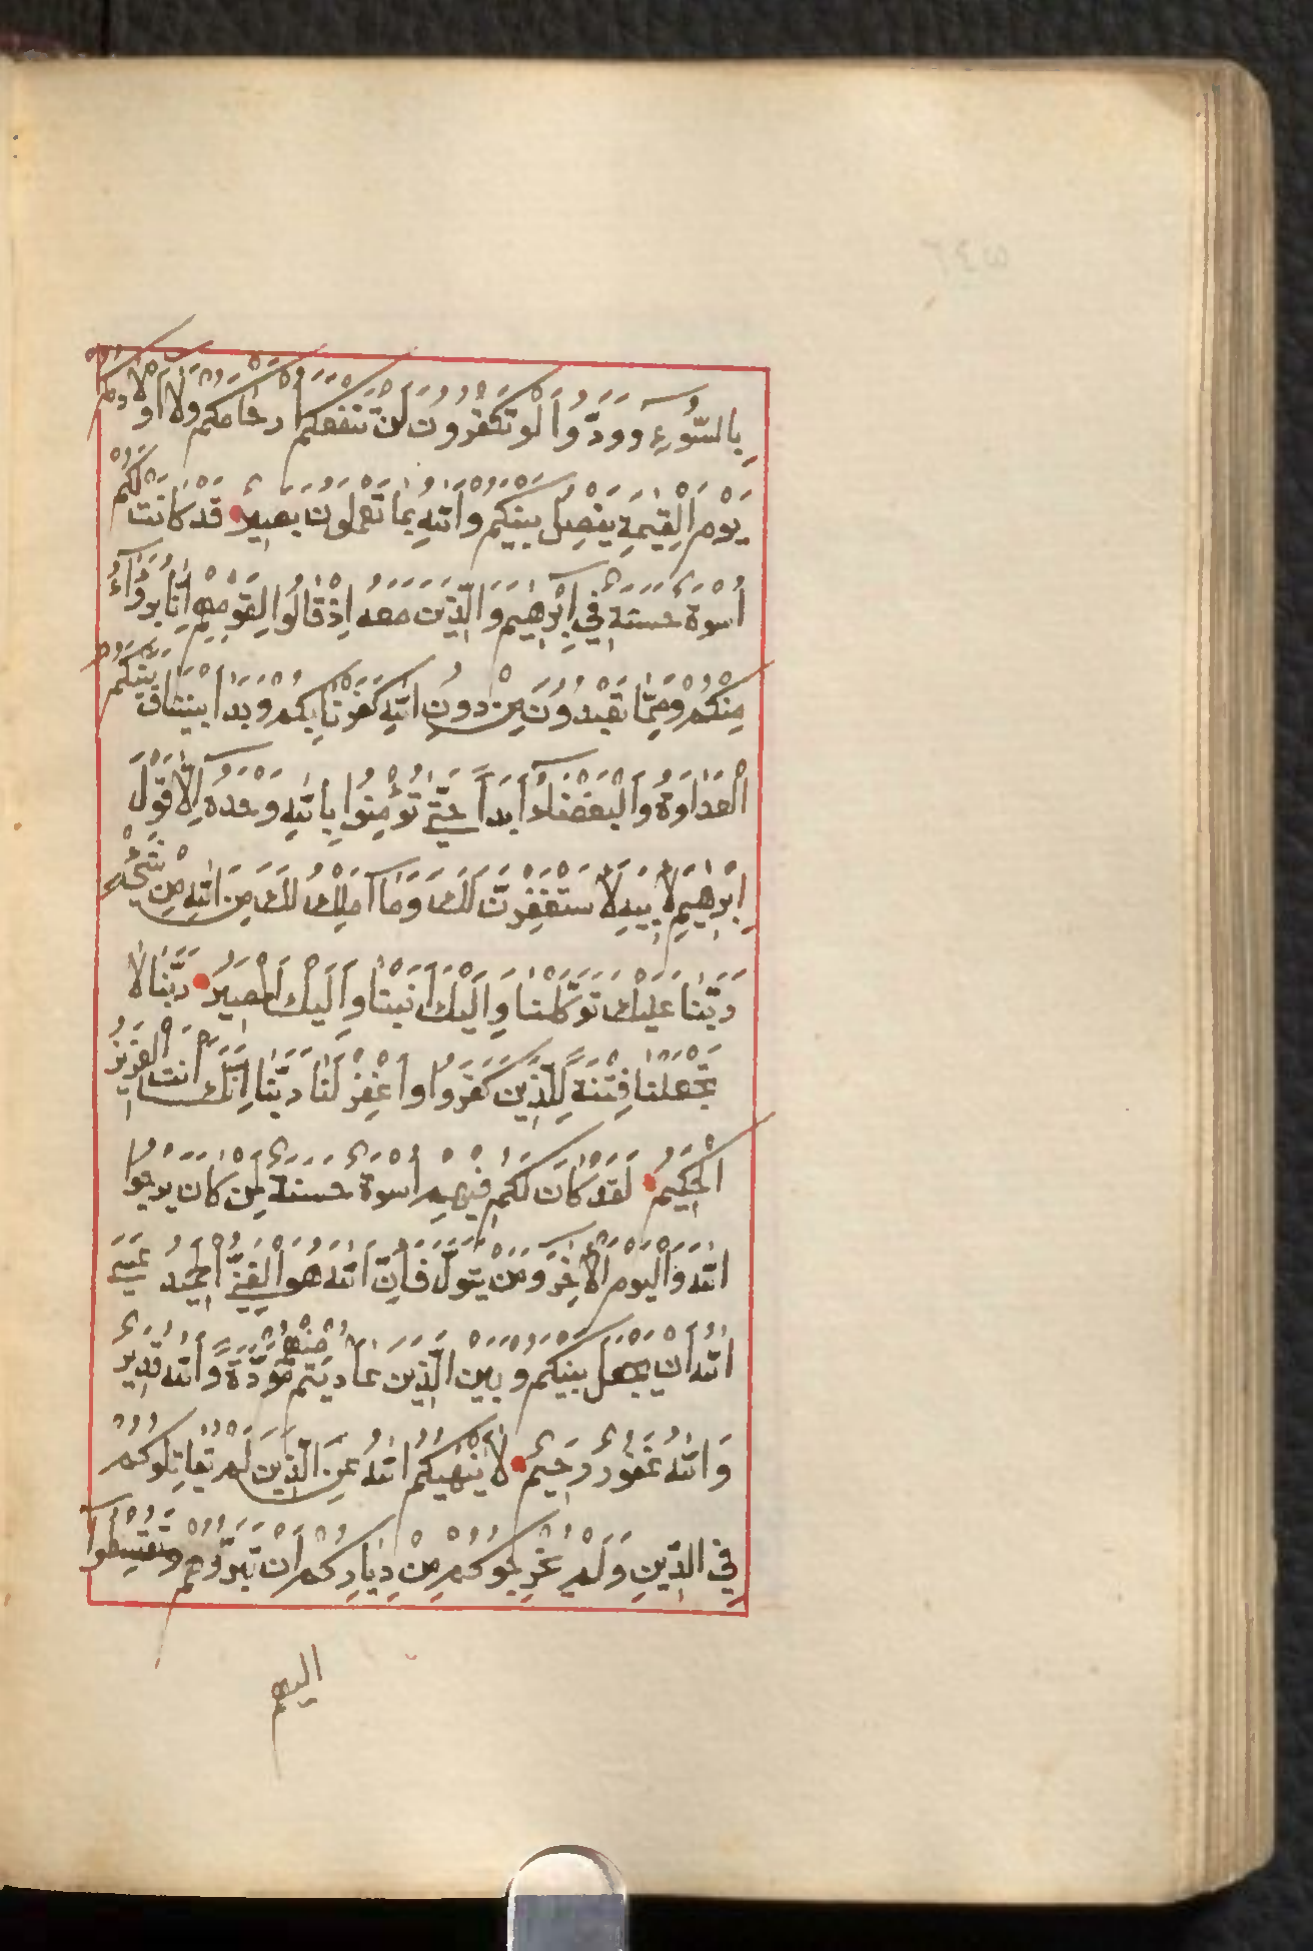 بِالسُّوۤءِ وَوَدُّوا لَوْ تَكْفُرُونَ لَنْ تَنْفَعَكُمْ اَرْحَامُكُمْ وَلَاۤ اَوْلَادُكُمْ
يَوْمَ الْقِيٰمَةِ يَفْصِلُ بَيْنَكُمْ وَاللّٰهُ بِمَا تَعْمَلُونَ بَصِيرٌ قَدْ كَانَتْ لَكُمْ
اُسْوَةٌ حَسَنَةٌ فِيۤ اِبْرٰهِيمَ وَالَّذِينَ مَعَهُ اِذْ قَالُوا لِقَوْمِهِمْ اِنَّا بُرَءٰۤؤُا
مِنْكُمْ وَمِمَّا تَعْبُدُونَ مِنْ دُونِ اللّٰهِ كَفَرْنَا بِكُمْ وَبَدَا بَيْنَنَا وَبَيْنَكُمُ
الْعَدَاوَةُ وَالْبَغْضَاۤءُ اَبَداً حَتّٰى تُؤْمِنُوا بِاللّٰهِ وَحْدَهُ اِلَّا قَوْلَ
اِبْرٰهِيمَ لِاَبِيهِ لَاَسْتَغْفِرَنَّ لَكَ وَمَاۤ اَمْلِكُ لَكَ مِنَ اللّٰهِ مِنْ شَيْءٍ
رَبَّنَا عَلَيْكَ تَوَكَّلْنَا وَاِلَيْكَ اَنَبْنَا وَاِلَيْكَ الْمَصِيرُ رَبَّنَا لَا
تَجْعَلْنَا فِتْنَةً لِلَّذِينَ كَفَرُوا وَاغْفِرْ لَنَا رَبَّنَا اِنَّكَ اَنْتَ الْعَزِيزُ
الْحَكِيمُ لَقَدْ كَانَ لَكُمْ فِيهِمْ اُسْوَةٌ حَسَنَةٌ لِمَنْ كَانَ يَرْجُوا
اللّٰهَ وَالْيَوْمَ الْاٰخِرَ وَمَنْ يَتَوَلَّ فَاِنَّ اللّٰهَ هُوَ الْغَنِيُّ الْحَمِيدُ عَسَى
اللّٰهُ اَنْ يَجْعَلَ بَيْنَكُمْ وَبَيْنَ الَّذِينَ عَادَيْتُمْ مِنْهُمْ مَوَدَّةً وَاللّٰهُ قَدِيرٌ
وَاللّٰهُ غَفُورٌ رَحِيمٌ لَا يَنْهٰيكُمُ اللّٰهُ عَنِ الَّذِينَ لَمْ يُقَاتِلُوكُمْ
فِي الدِّينِ وَلَمْ يُخْرِجُوكُمْ مِنْ دِيَارِكُمْ اَنْ تَبَرُّوهُمْ وَتُقْسِطُوۤا
اليهم